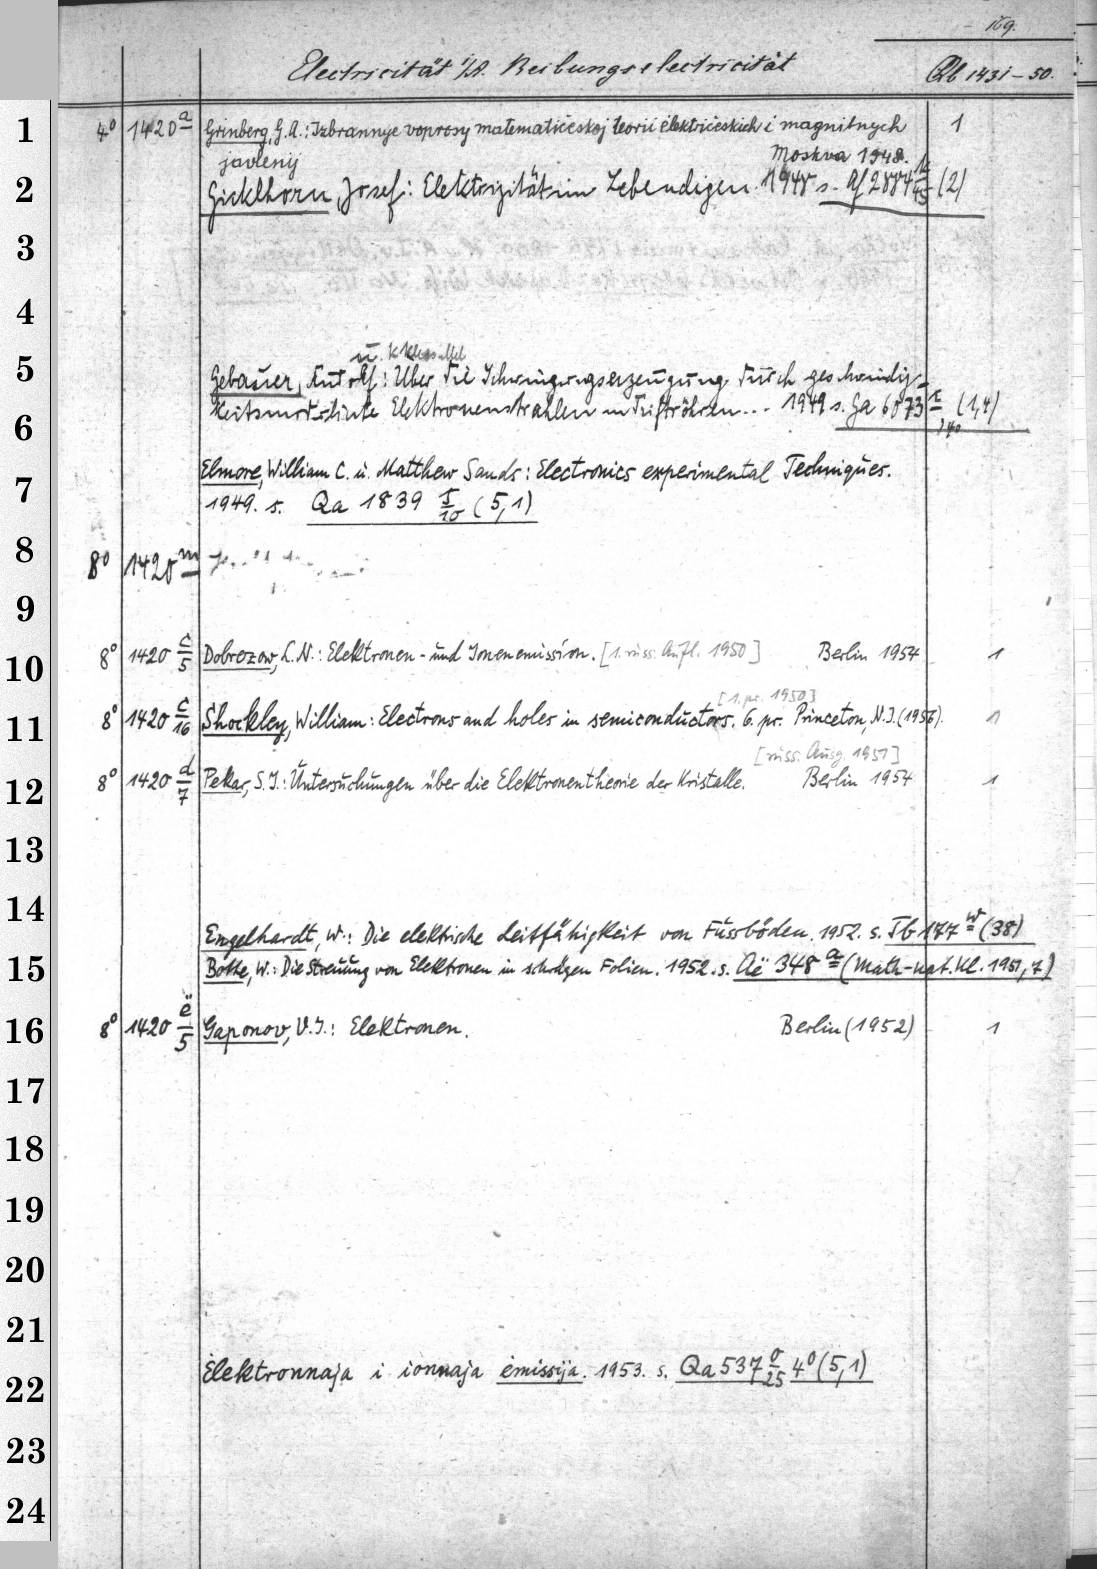 169.
Electricität i/A. Reibungselectricität Qb 1431-50.
1 4° 1420 a Grinberg, G. A.: Izbrannye voprosy matematičeskoj teorii ėlektričeskich i magnitnych 1
javlenij Moskva 1948.
2 Gicklhorn, Josef: Elektrizität im Lebendigen. 1948 s. (2)
3
4
5 u.
Gebauer, : Über die Schwingungserzeugung durch geschwindig-
6 Elektronenstrahlen in Triftröhren... 1949 s. Ga 6073 (1,4)
7 Elmore, William C. u. Matthew Sands: Electronics experimental Techniques.
1949. s. Qa 1839 s/10 (5,1)
8 8° 1420 m
9
10 8° 1420 c/5 Dobrezow, L. N.: Elektronen- und Ionenemission. [1. russ. Aufl. 1950] Berlin 1954 1
[1. pr. 1950]
11 8° 1420 c/16 Shockley, William: Electrons and holes in semiconductors. 6. pr. Princeton, N.J. (1956). 1
[russ. Ausg. 1951]
12 8° 1420 d/7 Pekar, S. I.: Untersuchungen über die Elektronentheorie der Kristalle. Berlin 1954 1
13
14 Engelhardt, W.: Die elektrische Leitfähigkeit von Fussböden. 1952. s. 147 w (38)
15 Bothe, W.: Die Streuung von Elektronen in schrägen Folien. 1952. s. Aë 348 a (Math-nat. Kl. 1951, 7)
16 8° 1420 ë/5 Gaponov, V. I.: Elektronen. Berlin (1952) 1
17
18
19
20
21
22 Ėlektronnaja i ionnaja ėmissija. 1953. s. Qa 537 o/25 4° (5,1)
23
24